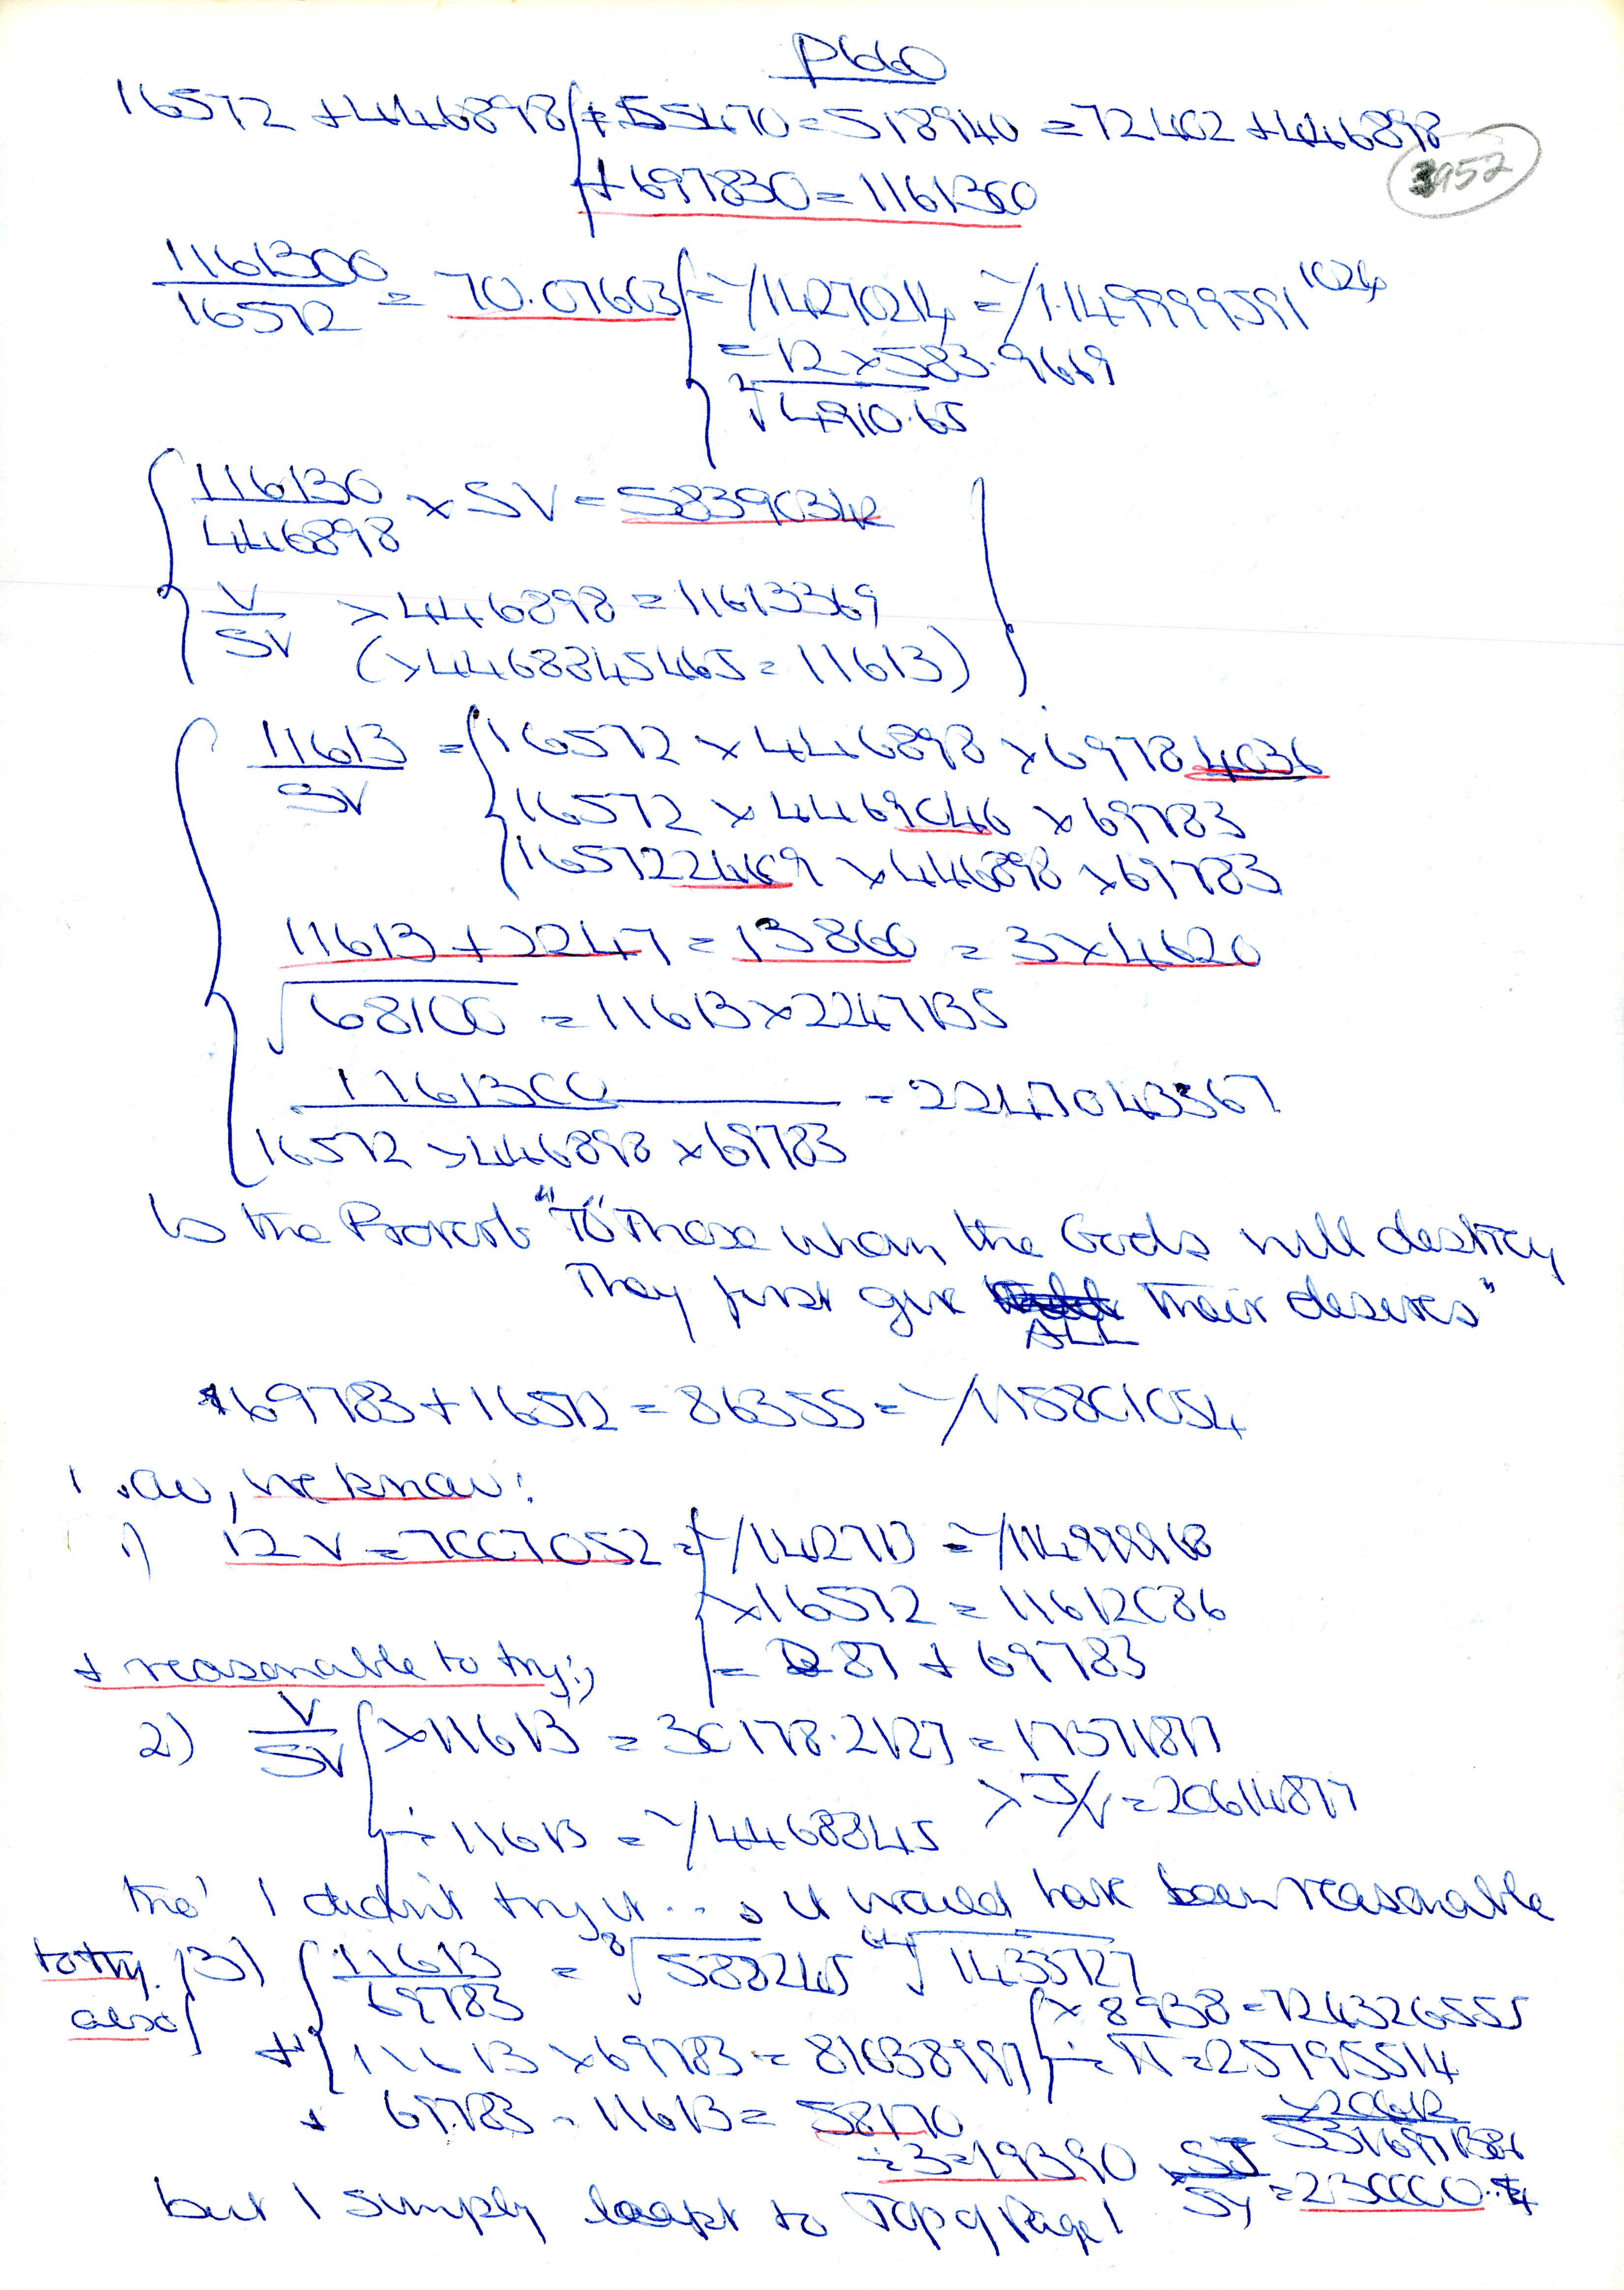 p660
16572 + 446898 { + 55470 = 518940 = 72402 + 446898
+ 697830 = 1161300
3952
1161300 / 16572 = 70.07603 { = 1/1427024 = 1/1.149999591^1024
= 12 × 583.9669
√4910.65
{ 116130 / 446898 × SV = 58390342 }
V/SV × 446898 = 11613369
(×4468845465 = 11613)
{ 11613 / SV = { 16572 × 446898 × 697834036
16572 × 4469046 × 69783
165722469 × 446898 × 69783
11613 + 2247 = 13860 = 3 × 4620
√68100 = 11613 × 2247135
1161300 / 16572 × 446898 × 69783 = 2247043367
Is the Proverb "To" Those whom the Gods will destroy
They first give ALL their desires"
69783 + 16572 = 86355 = 1/115801054
we know:
1) 12V = 7007052 = { 1/142713 = 1/11499968
× 16572 = 11612086
= 287 + 69783
+ reasonable to try:)
2) V/SV { × 11613 = 30178.2127 = 17371877
× J/V = 20614877
÷ 11613 = 1/4468845
tho' I didn't try it... it would have been reasonable
to try also (3) { 11613 / 69783 = ⁸√588245 ⁶⁴√1433727
+ { 11613 × 69783 = 81038997 { × 8938 = 724326555
÷ π = 25795514
+ 69783 - 11613 = 58170
÷ 3 = 19390
× SJ/SY = 230000..
but I simply leapt to Top of Page!